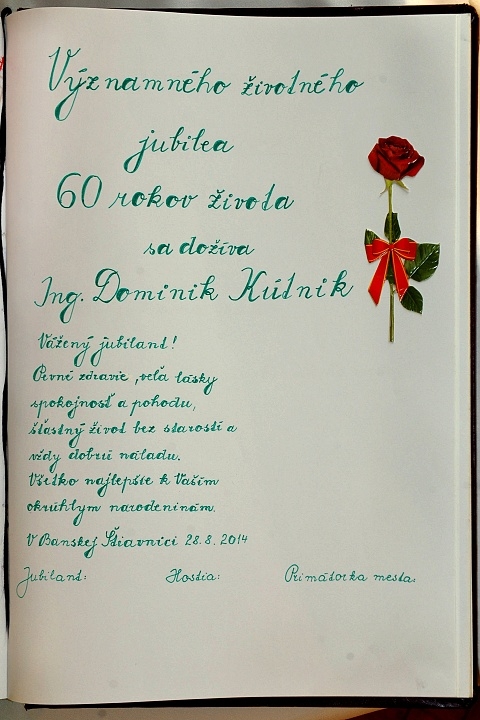 Významného životného
jubilea
60 rokov života
sa dožíva
Ing. Dominik Kútnik
Vážený jubilant!
Pevné zdravie, veľa lásky
spokojnosť a pohodu,
šťastný život bez starostí a
vždy dobrú náladu.
Všetko najlepšie k Vašim
okrúhlym narodeninám.
V Banskej Štiavnici 28.8.2014
Jubilant: Hostia: Primátorka mesta: